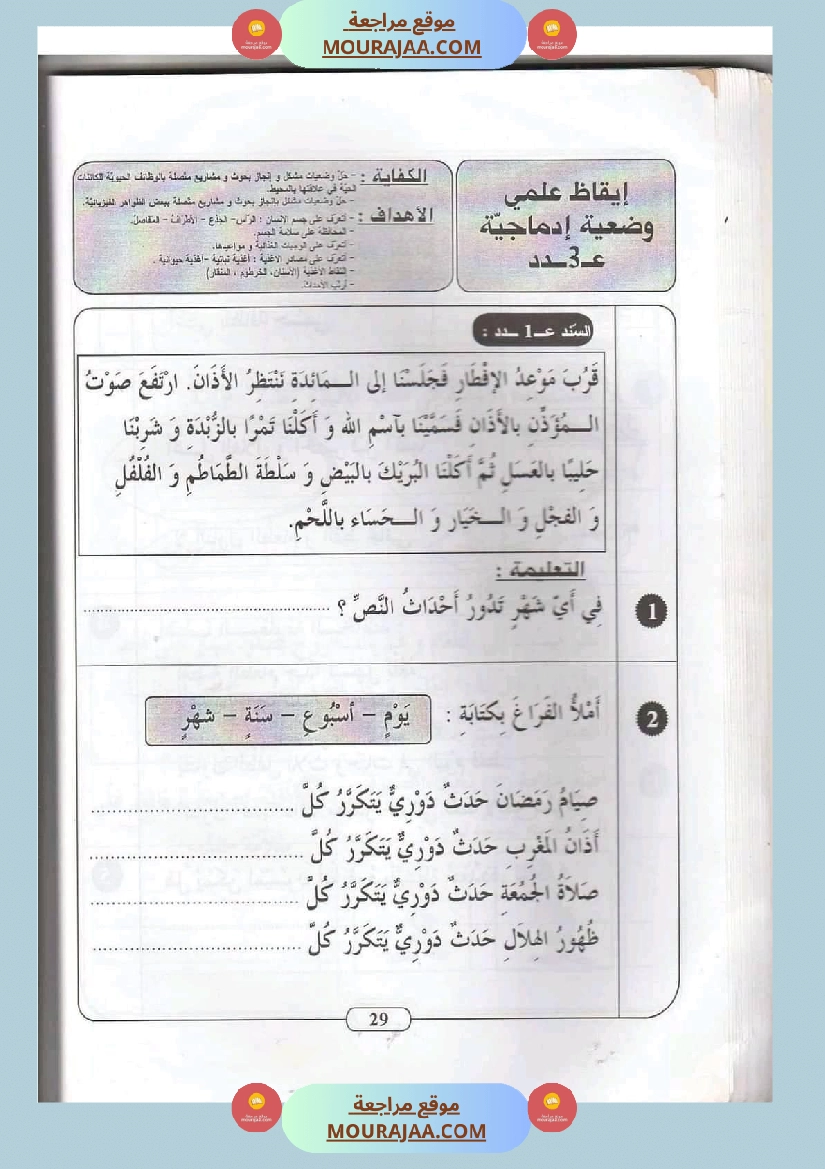 موقع مراجعة
MOURAJAA.COM
إيقاظ علمي
وضعية إدماجيّة
عـ3ـدد
الكفاية : - حلّ وضعيات مشكل و إنجاز بحوث و مشاريع متّصلة بالوظائف الحيويّة للكائنات
الحيّة في علاقتها بالمحيط.
- حلّ وضعيات مشكل بانجاز بحوث و مشاريع متصلة ببعض الظواهر الفيزيائيّة.
الأهداف : - أتعرف على جسم الانسان : الرّأس- الجذع - الأطراف - المفاصل.
- المحافظة على سلامة الجسم.
- أتعرف على الوجبات الغذائية و مواعيدها.
- أتعرف على مصادر الأغذية : أغذية نباتية -أغذية حيوانية .
- التقاط الأغذية (الأسنان، الخرطوم ، المنقار)
- أرتب الأحداث.
السند عـ1 ـدد :
قَرُبَ مَوْعِدُ الإِفْطَارِ فَجَلَسْنَا إلى الـمَائِدَةِ نَنْتَظِرُ الأَذَانَ. ارْتَفَعَ صَوْتُ
الـمُؤَذِّنِ بالأَذَانِ فَسَمَّيْنَا بآسْمِ الله وَ أَكَلْنَا تَمْرًا بالزُّبْدَةِ وَ شَرِبْنَا
حَلِيبًا بالعَسَلِ ثُمَّ أَكَلْنَا البُرَيْكَ بالبَيْضِ وَ سَلْطَةَ الطَّمَاطُمِ وَ الفُلْفُلِ
وَ الفجْلِ وَ الـخَيَار وَ الـحَسَاء باللَّحْمِ.
التعليمة :
1 فِي أَيِّ شَهْرٍ تَدُورُ أَحْدَاثُ النَّصِّ ؟ ..............................
2 أَمْلَأُ الفَرَاغَ بِكتَابَةِ : يَوْمٍ – أسْبُوعٍ – سَنَةٍ – شهْرٍ
صِيَامُ رَمَضَانَ حَدَثٌ دَوْرِيٌّ يَتَكَرَّرُ كُلَّ ..............................
أَذَانُ المَغْرِبِ حَدَثٌ دَوْرِيٌّ يَتَكَرَّرُ كُلَّ ..............................
صَلاَةُ الجُمُعَةِ حَدَثٌ دَوْرِيٌّ يَتَكَرَّرُ كُلَّ ..............................
ظُهُورُ الهِلاَلِ حَدَثٌ دَوْرِيٌّ يَتَكَرَّرُ كُلَّ ..............................
29
موقع مراجعة
MOURAJAA.COM